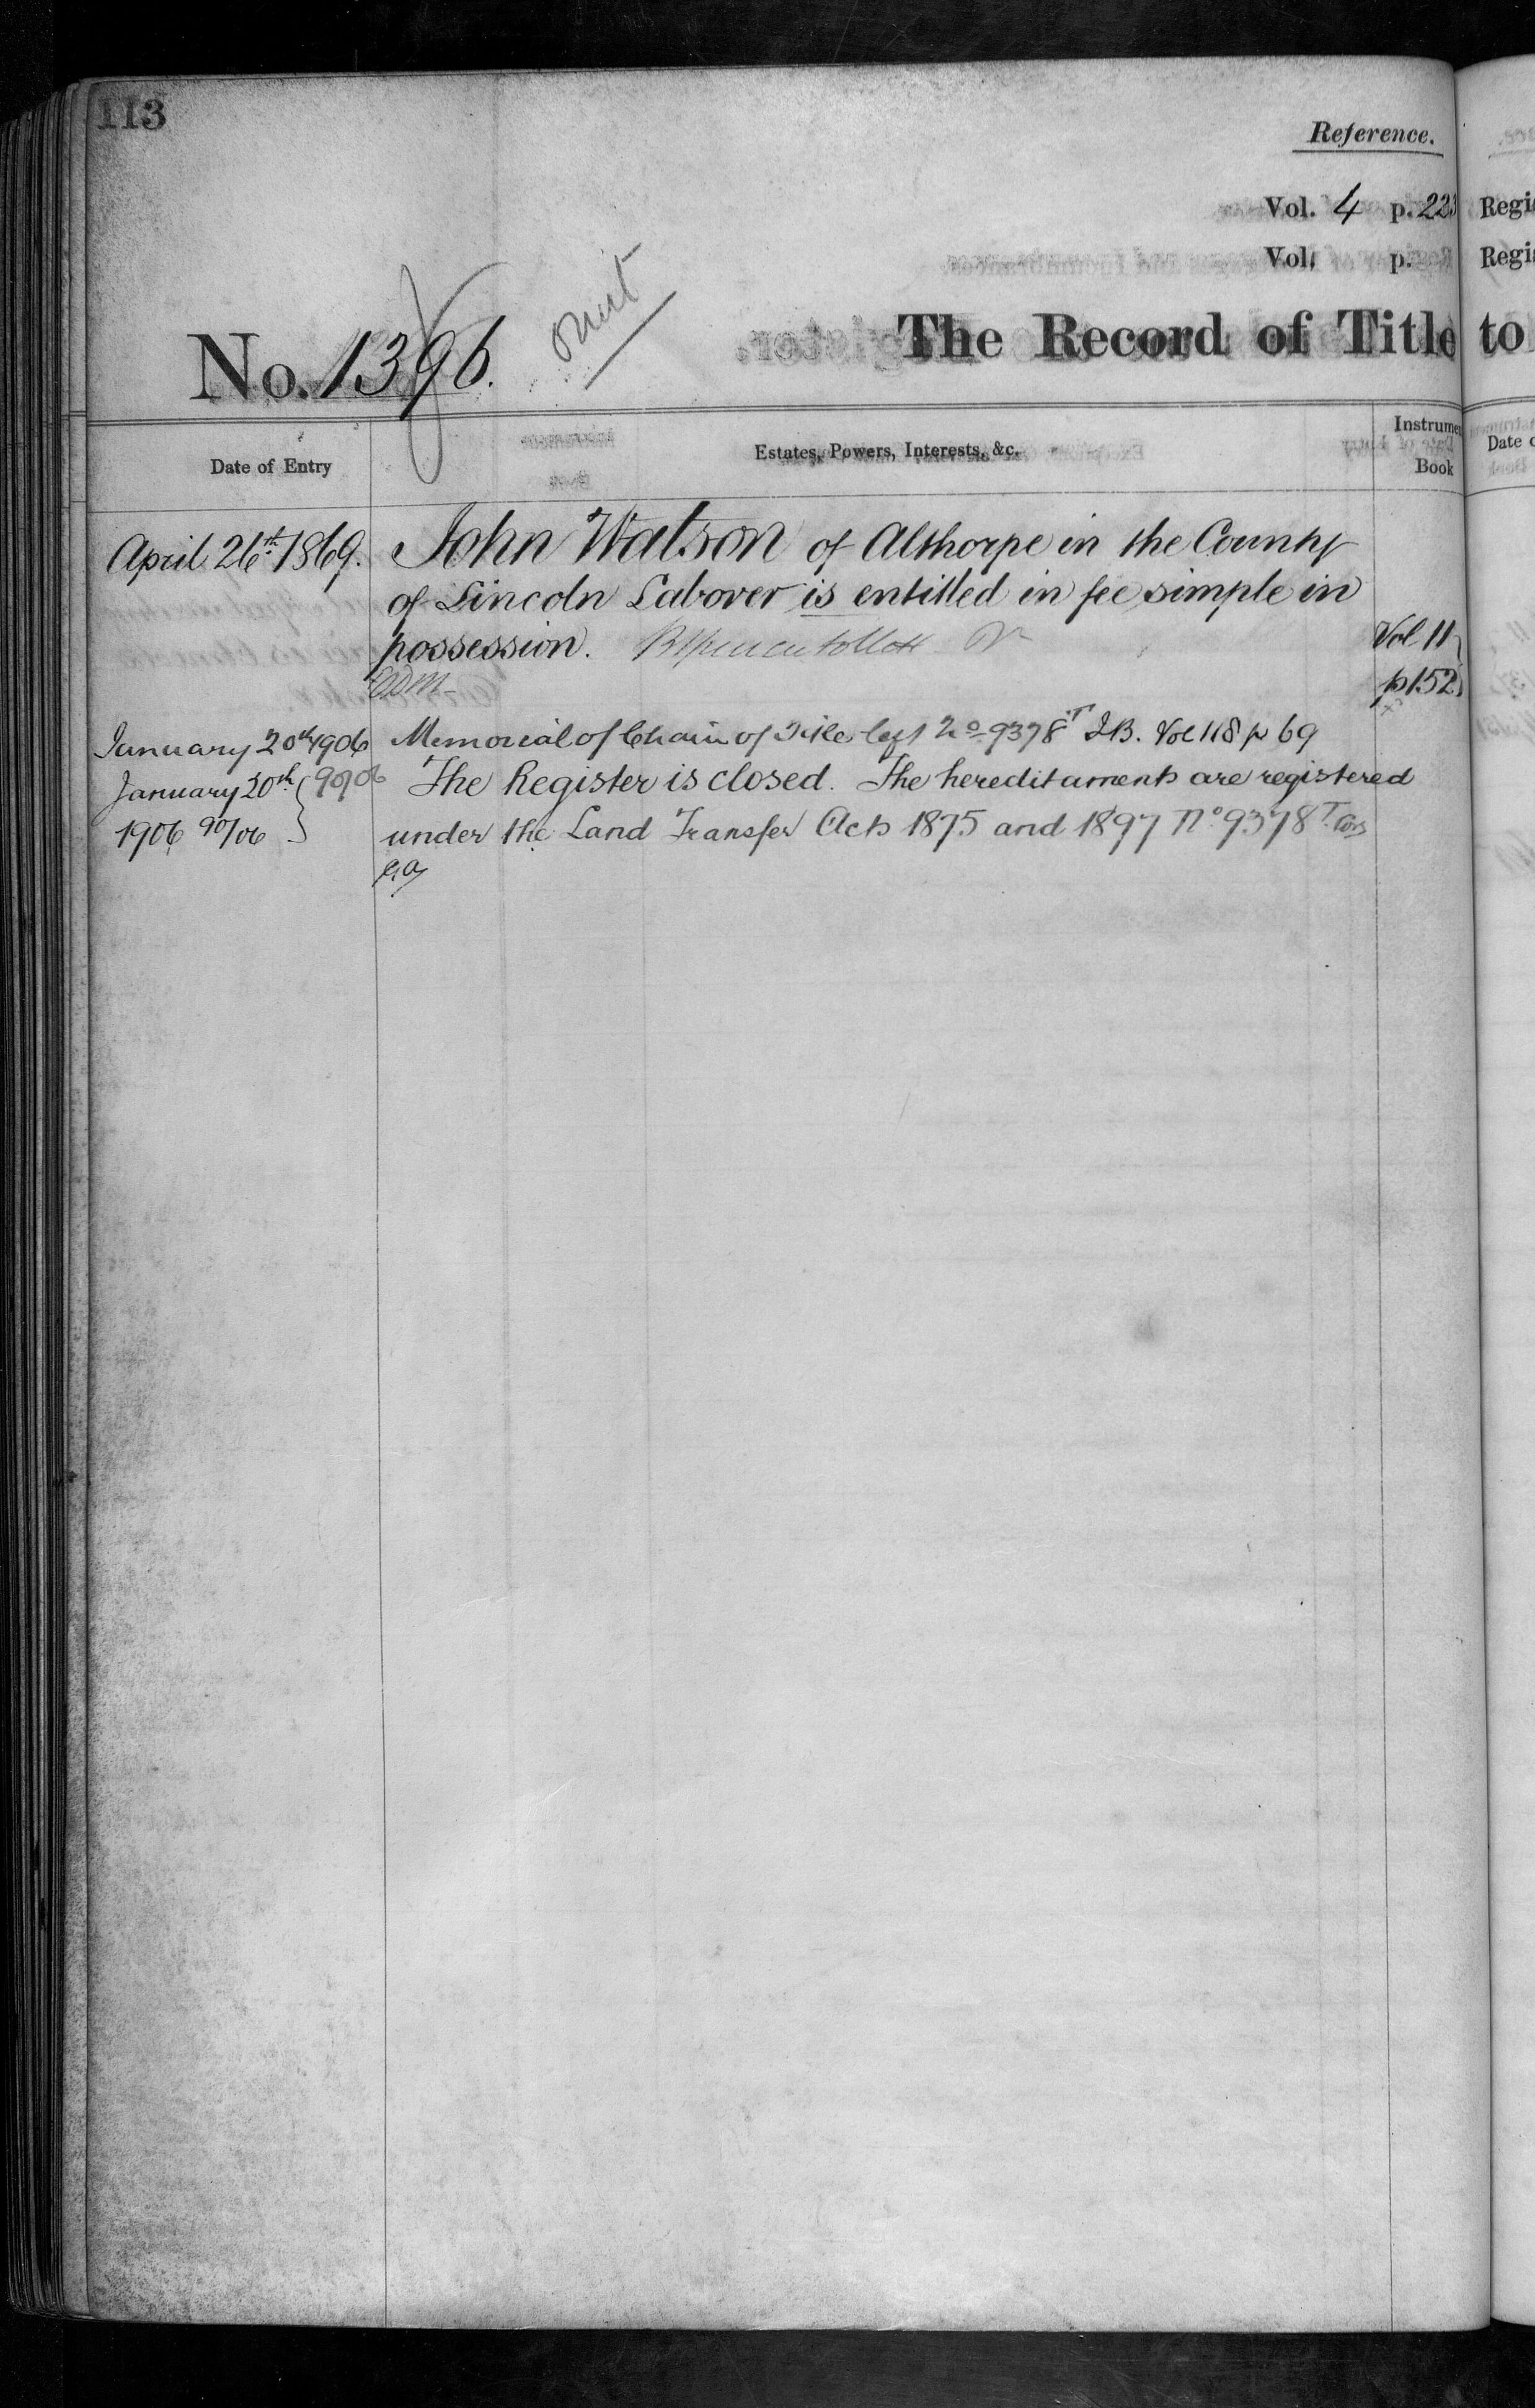 113
Reference.
Vol. 4 p. 223
Vol. p.
No. 1396. omit
The Record of Title
Date of Entry
Estates, Powers, Interests, &c.
Instrumen
Book
April 26th 1869. John Watson of Althorpe in the County
of Lincoln Laborer is entitled in fee simple in
possession.
Vol 11
p 152
January 20th 1906 Memorial of Chain of Title left No 9378 T I.B. Vol 118 p 69
January 20th 90/06 The Register is closed. The hereditaments are registered
1906 90/06 under the Land Transfer Acts 1875 and 1897 No 9378 T.
Regis
Regis
to
Date o